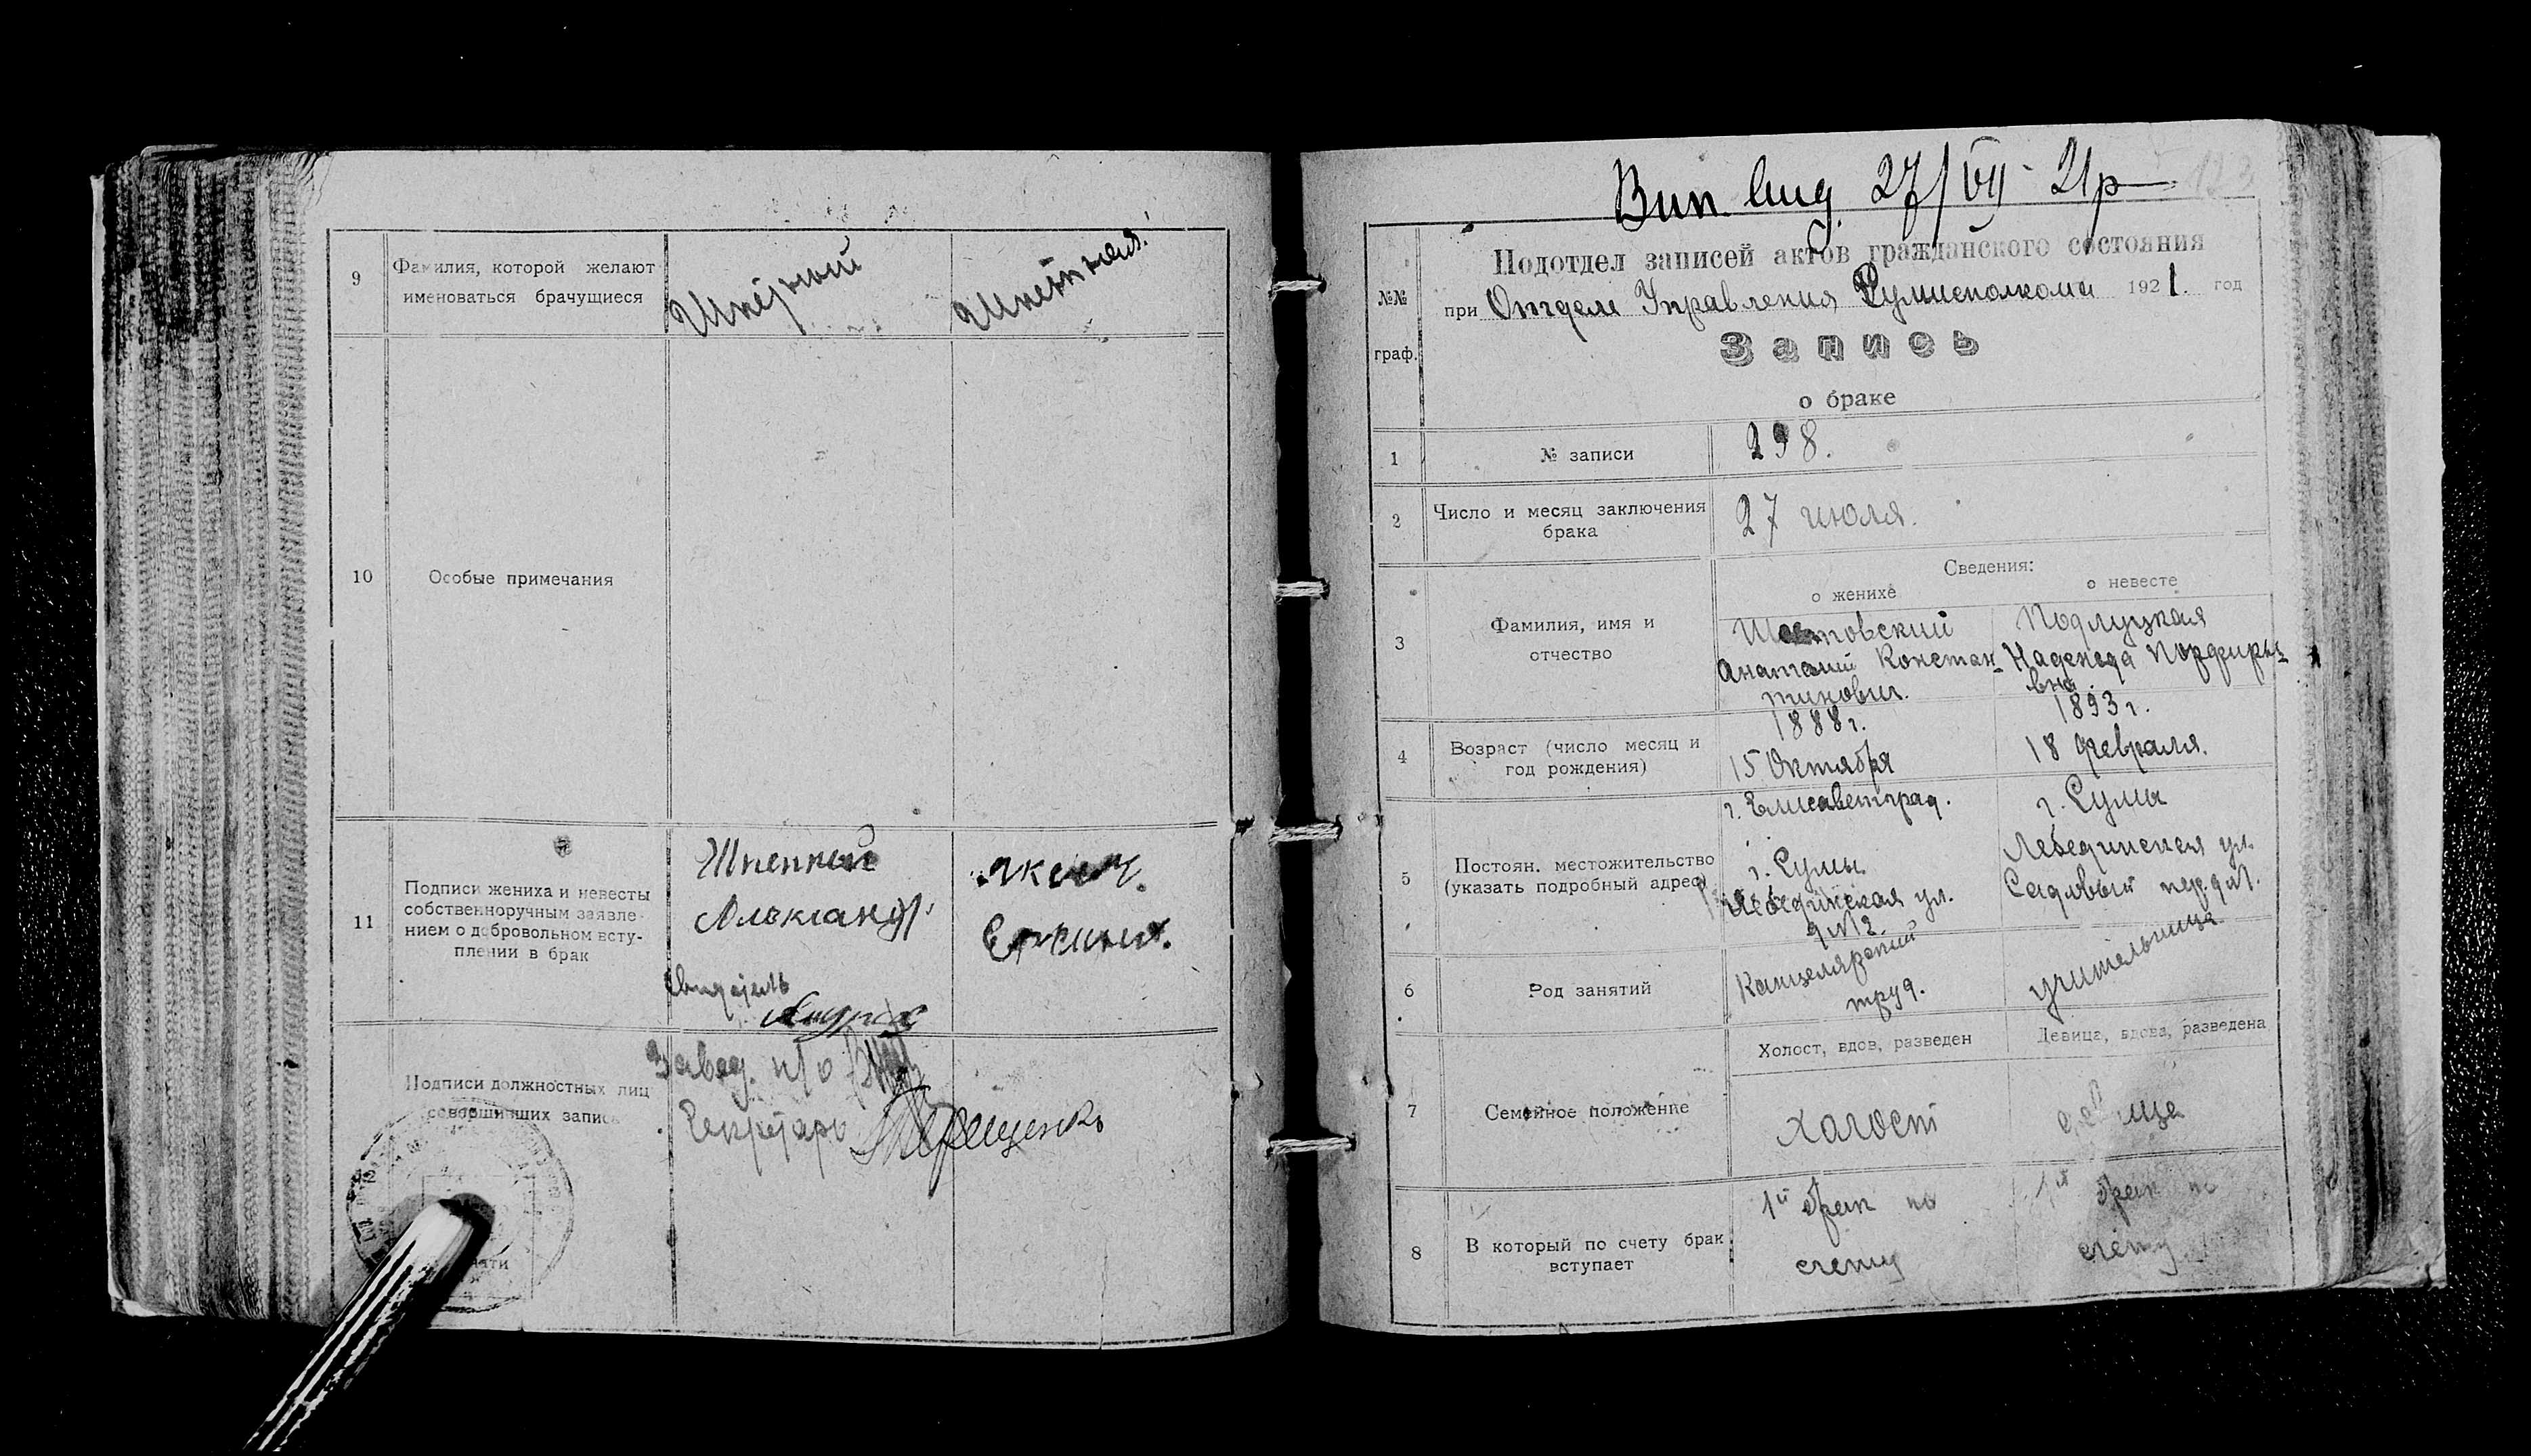 9
Фамилия, которой желают
именоваться брачущиеся
10
Особые примечания
11
Подписи жениха и невесты
собственноручным заявле-
нием о добровольном всту-
плении в брак
Александр
свидетель
Подписи должностных лиц
совершивших запись
Завед. п/о
Секретарь Терещенко
27/VII - 21р
123
№№
граф.
Подотдел записей актов гражданского состояния
при Отделе Управления Сумисполкома 1921. год
Запись
о браке
1
№ записи
298.
2
Число и месяц заключения
брака
27 июля.
Сведения:
о женихе
о невесте
3
Фамилия, имя и
отчество
Анатолий Констан-
тинович.
Подлуцкая
Надежда Порфирье-
вна.
4
Возраст (число месяц и
год рождения)
1888г.
15 Октября
1893г.
18 февраля.
5
Постоян. местожительство
(указать подробный адрес)
г. Елисаветград.
г. Сумы
Лебединская ул.
д №12.
г. Сумы
Лебединская ул.
Садовый пер. д №1.
6
Род занятий
Канцелярский
труд.
учительница
7
Семейное положение
Холост, вдов, разведен
Девица, вдова, разведена
холост
девица
8
В который по счету брак
вступает
1й брак по
счету
1й брак по
счету